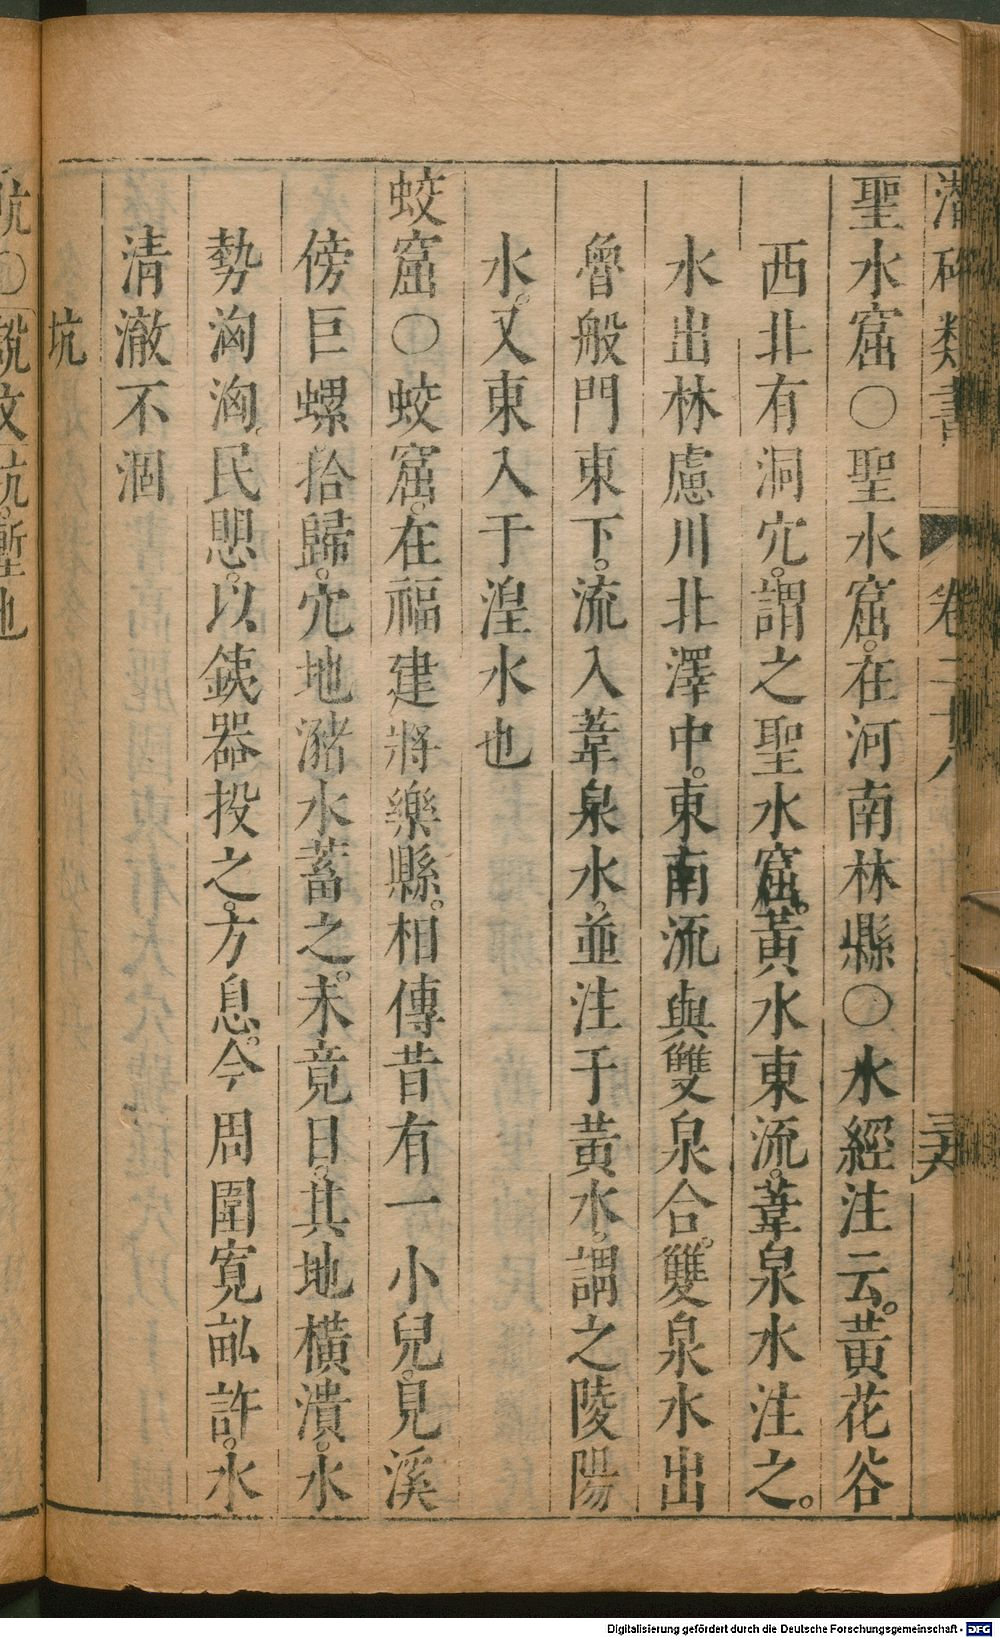 潛確類書 卷二十八
聖水窟○聖水窟。在河南林縣○水經注云。黃花谷
西北有洞穴。謂之聖水窟。黃水東流。葦泉水注之。
水出林慮川北澤中。東南流與雙泉合。雙泉水出
魯般門東下。流入葦泉水。並注于黃水。謂之陵陽
水。又東入于湟水也
蛟窟○蛟窟。在福建將樂縣。相傳昔有一小兒。見溪
傍巨螺拾歸。穴地瀦水蓄之。未竟日。其地橫潰。水
勢洶洶。民愳。以銕器投之。方息。今周圍寬畝許。水
清澈不涸
坑
坑○說文坑。塹也
Digitalisierung gefördert durch die Deutsche Forschungsgemeinschaft - DFG